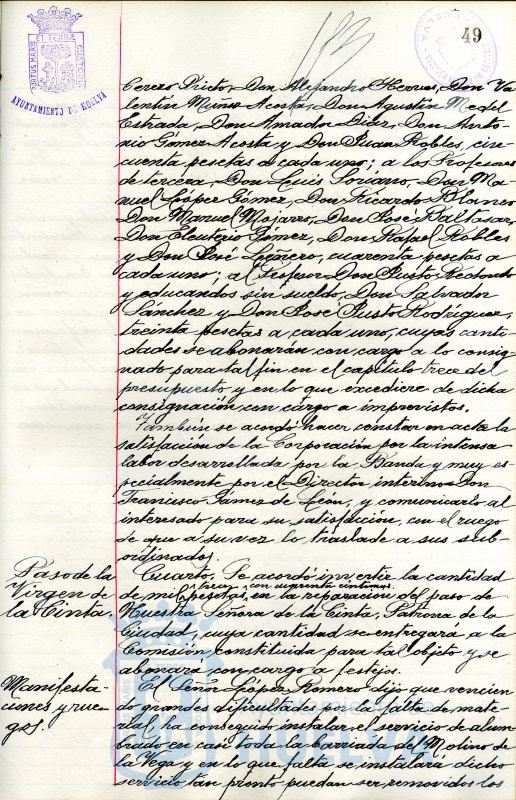 PORTUS MARIS ET TERRÆ CUSTODIA
AYUNTAMIENTO DE HUELVA
49
Cerezo Pictor, Don Alejandro Herves, Don Va
lentín Muñoz Acosta, Don Agustín Medel
Estrada, Don Amador Díaz, Don Anto
nio Gómez Acosta y Don Juan Robles, cin
cuenta pesetas a cada uno; a los Profesores
de tercera, Don Luis Soriano, Don Ma
nuel López Gómez, Don Ricardo Blanco
Don Manuel Mojarro, Don José Baltasar,
Don Eleuterio Gómez, Don Rafael Robles
y Don José Leñero, cuarenta pesetas a
cada uno; al Profesor Don Justo Redondo
y educandos sin sueldo, Don Salvador
Sánchez y Don José Justo Rodríguez,
treinta pesetas a cada uno, cuyas canti
dades se abonarán con cargo a lo consig
nado para tal fin en el capítulo trece del
presupuesto y en lo que excediere de dicha
consignación con cargo a imprevistos.
También se acordó hacer constar en acta la
satisfacción de la Corporación por la intensa
labor desarrollada por la Banda y muy es
pecialmente por el Director interino Don
Francisco Gámez de León, y comunicarlo al
interesado para su satisfacción, con el ruego
de que a su vez lo traslade a sus sub
ordinados.
Paso de la
Virgen de
la Cinta.
Cuarto, Se acordó invertir la cantidad
de mil pesetas, en la reparación del paso de
Nuestra Señora de la Cinta, Patrona de la
Ciudad, cuya cantidad se entregará a la
Comisión constituida para tal objeto y se
abonará con cargo a festejos.
Manifesta
ciones y rue
gos.
El Señor López Romero dijo que vencien
do grandes dificultades por la falta de mate
rial, ha conseguido instalar el servicio de alum
brado en casi toda la barriada del Molino de
la Vega y en lo que falta se instalará dicho
servicio tan pronto puedan ser removidos los